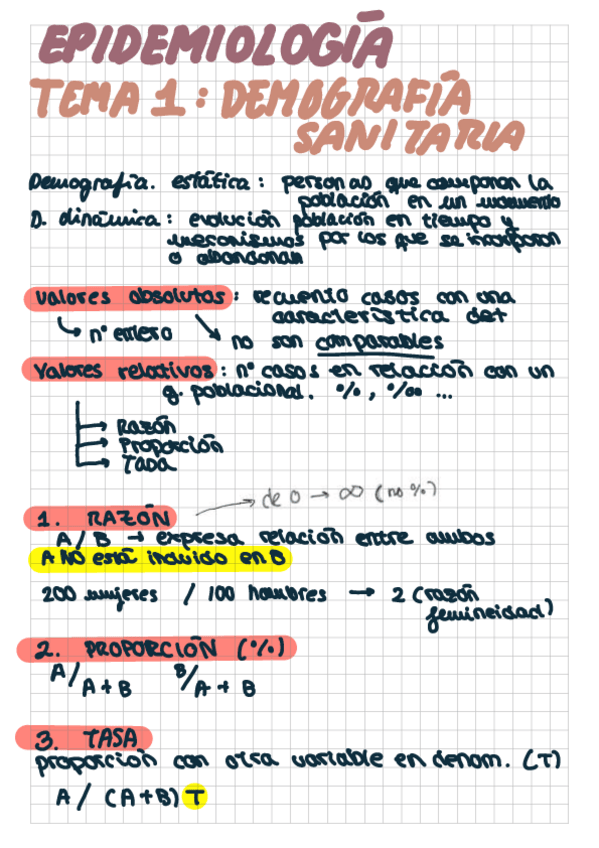 EPIDEMIOLOGÍA
TEMA 1: DEMOGRAFÍA
SANITARIA
Demografía. estática: personas que componen la
población en un momento
D. dinámica: evolución población en tiempo y
mecanismos por los que se incorporan
o abandonan
Valores absolutos: recuento casos con una
característica det
nº entero
no son comparables
Valores relativos: nº casos en relación con un
g. poblacional. %, ‰ ...
Razón
Proporción
TASA
de 0 → ∞ (no %)
1. RAZÓN
A / B → expresa relación entre ambos
A NO está incluido en B
200 mujeres / 100 hombres → 2 (razón
femineidad)
2. PROPORCIÓN (%)
A/A+B B/A+B
3. TASA
proporción con otra variable en denom. (T)
A / (A+B) T